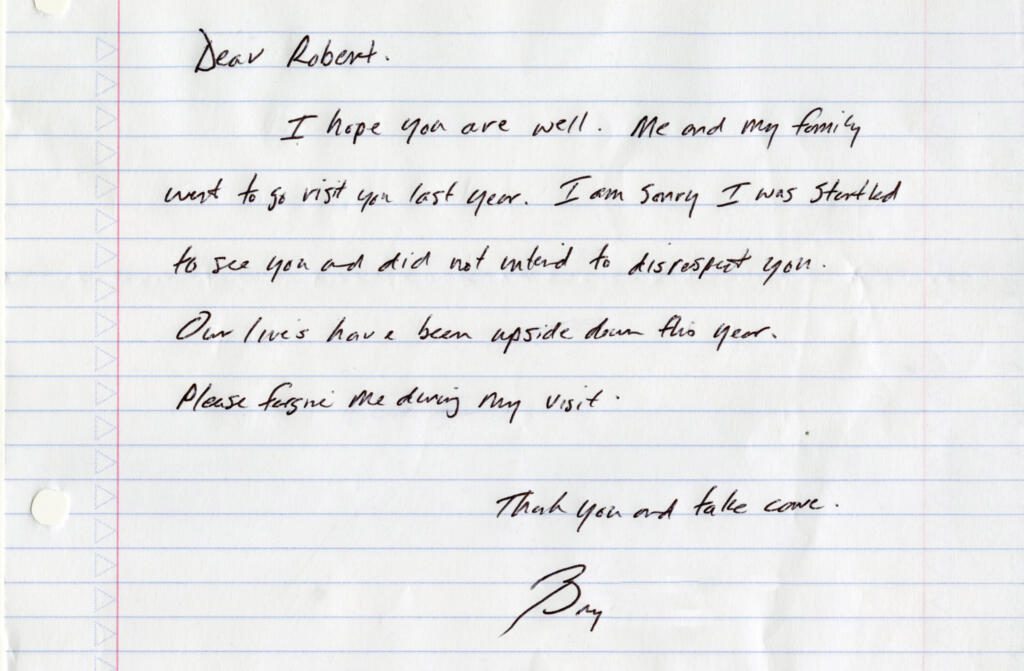 Dear Robert.
I hope you are well. Me and my family
went to go visit you last year. I am sorry I was startled
to see you and did not intend to disrespect you.
Our lives have been upside down this year.
Please forgive me during my visit.
Thank you and take care.